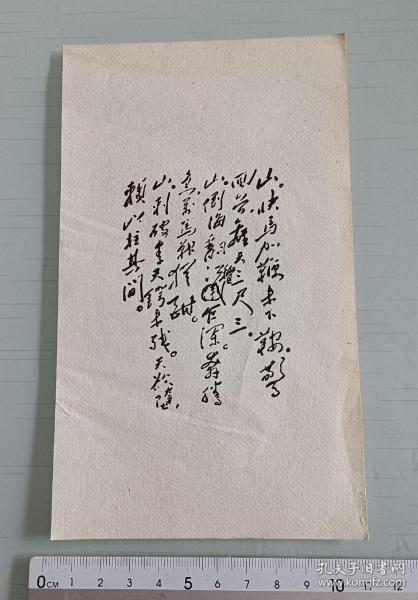 山。快马加鞭未下鞍。惊
回首，离天三尺三。
山。倒海翻江卷巨澜。奔腾
急，万马战犹酣。
山。刺破青天锷未残。天欲堕，
赖以拄其间。
0 CM 1 2 3 4 5 6 7 8 9 10 11 12
孔夫子旧书网